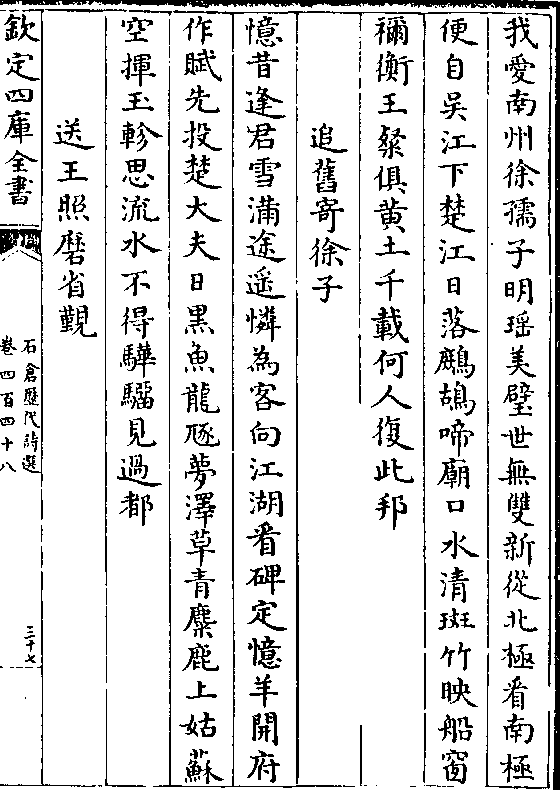 我愛南州徐孺子明瑶美璧世無雙新從北極看南極
便自吳江下楚江日落鷓鴣啼廟口水清斑竹映船窗
禰衡王粲俱黄土千載何人復此邦
追舊寄徐子
憶昔逢君雪滿途遥憐為客向江湖看碑定憶羊開府
作賦先投楚大夫日黒魚龍豗夢澤草青麋鹿上姑蘇
空揮玉軫思流水不得驊騮見過都
送王照磨省覲
欽定四庫全書
石倉歴代詩選
卷四百四十八
三十七